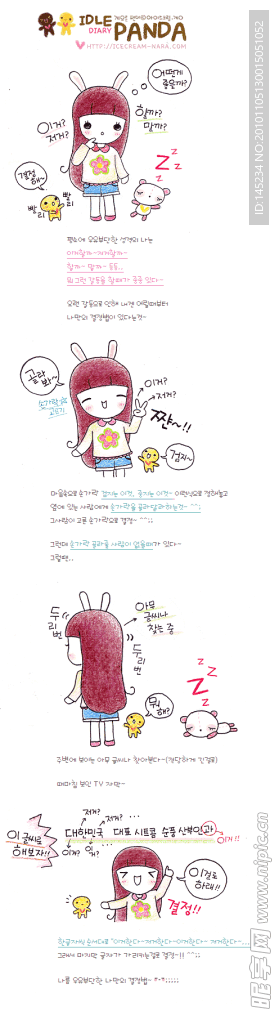 IDLE
DIARY
PANDA
게으른 판다의 다이어리.까지
♥ HTTP://ICECREAM-NARA.COM
어떻게
좋을까?
이거?
저거?
할까?
말까?
결정
해~
빨리
빨리
z z z
평소에 우유부단한 성격의 나는
이거할까~저거할까~
할까~ 말까~ 등등..
뭐그런 갈등을 할때가 종종 있다~
요런 갈등으로 인해 내겐 어릴때부터
나만의 결정법이 있다는것~
골라
봐~
손가락
고르기
이거?
저거?
쨘~!!
검지~
마음속으로 손가락 검지는 이것, 중지는 이것~ 이런식으로 정해놓고
옆에 있는 사람에게 손가락을 골라달라하는것~ ^^;
그사람이 고른 손가락으로 결정~ ^^;;
그런데 손가락 골라줄 사람이 없을때가 있다~
그럴땐..
두리번
두리번
아무
글씨나
찾는 중
뭐
해?
z z z
주변에 보이는 아무 글씨나 찾아본다~(적당하게 긴걸로)
때마침 보인 TV 자막~
이 글씨로
해보자!!
저거? 저거?
대한민국 대표 시트콤 순풍 산부인과
이거? 거?
이거!!
이걸로
하래!!
결정!!
한글자씩 순서대로 "이거한다~저거한다~이거한다~ 저거한다~...
그래서 마지막 글자가 가리키는걸로 결정~!! ^^;;
나름 우유부단한 나만의 결정법~ ㅋㅋ;;;;;
ID:145234 NO:20101105130015051052
昵享网 www.nipic.cn